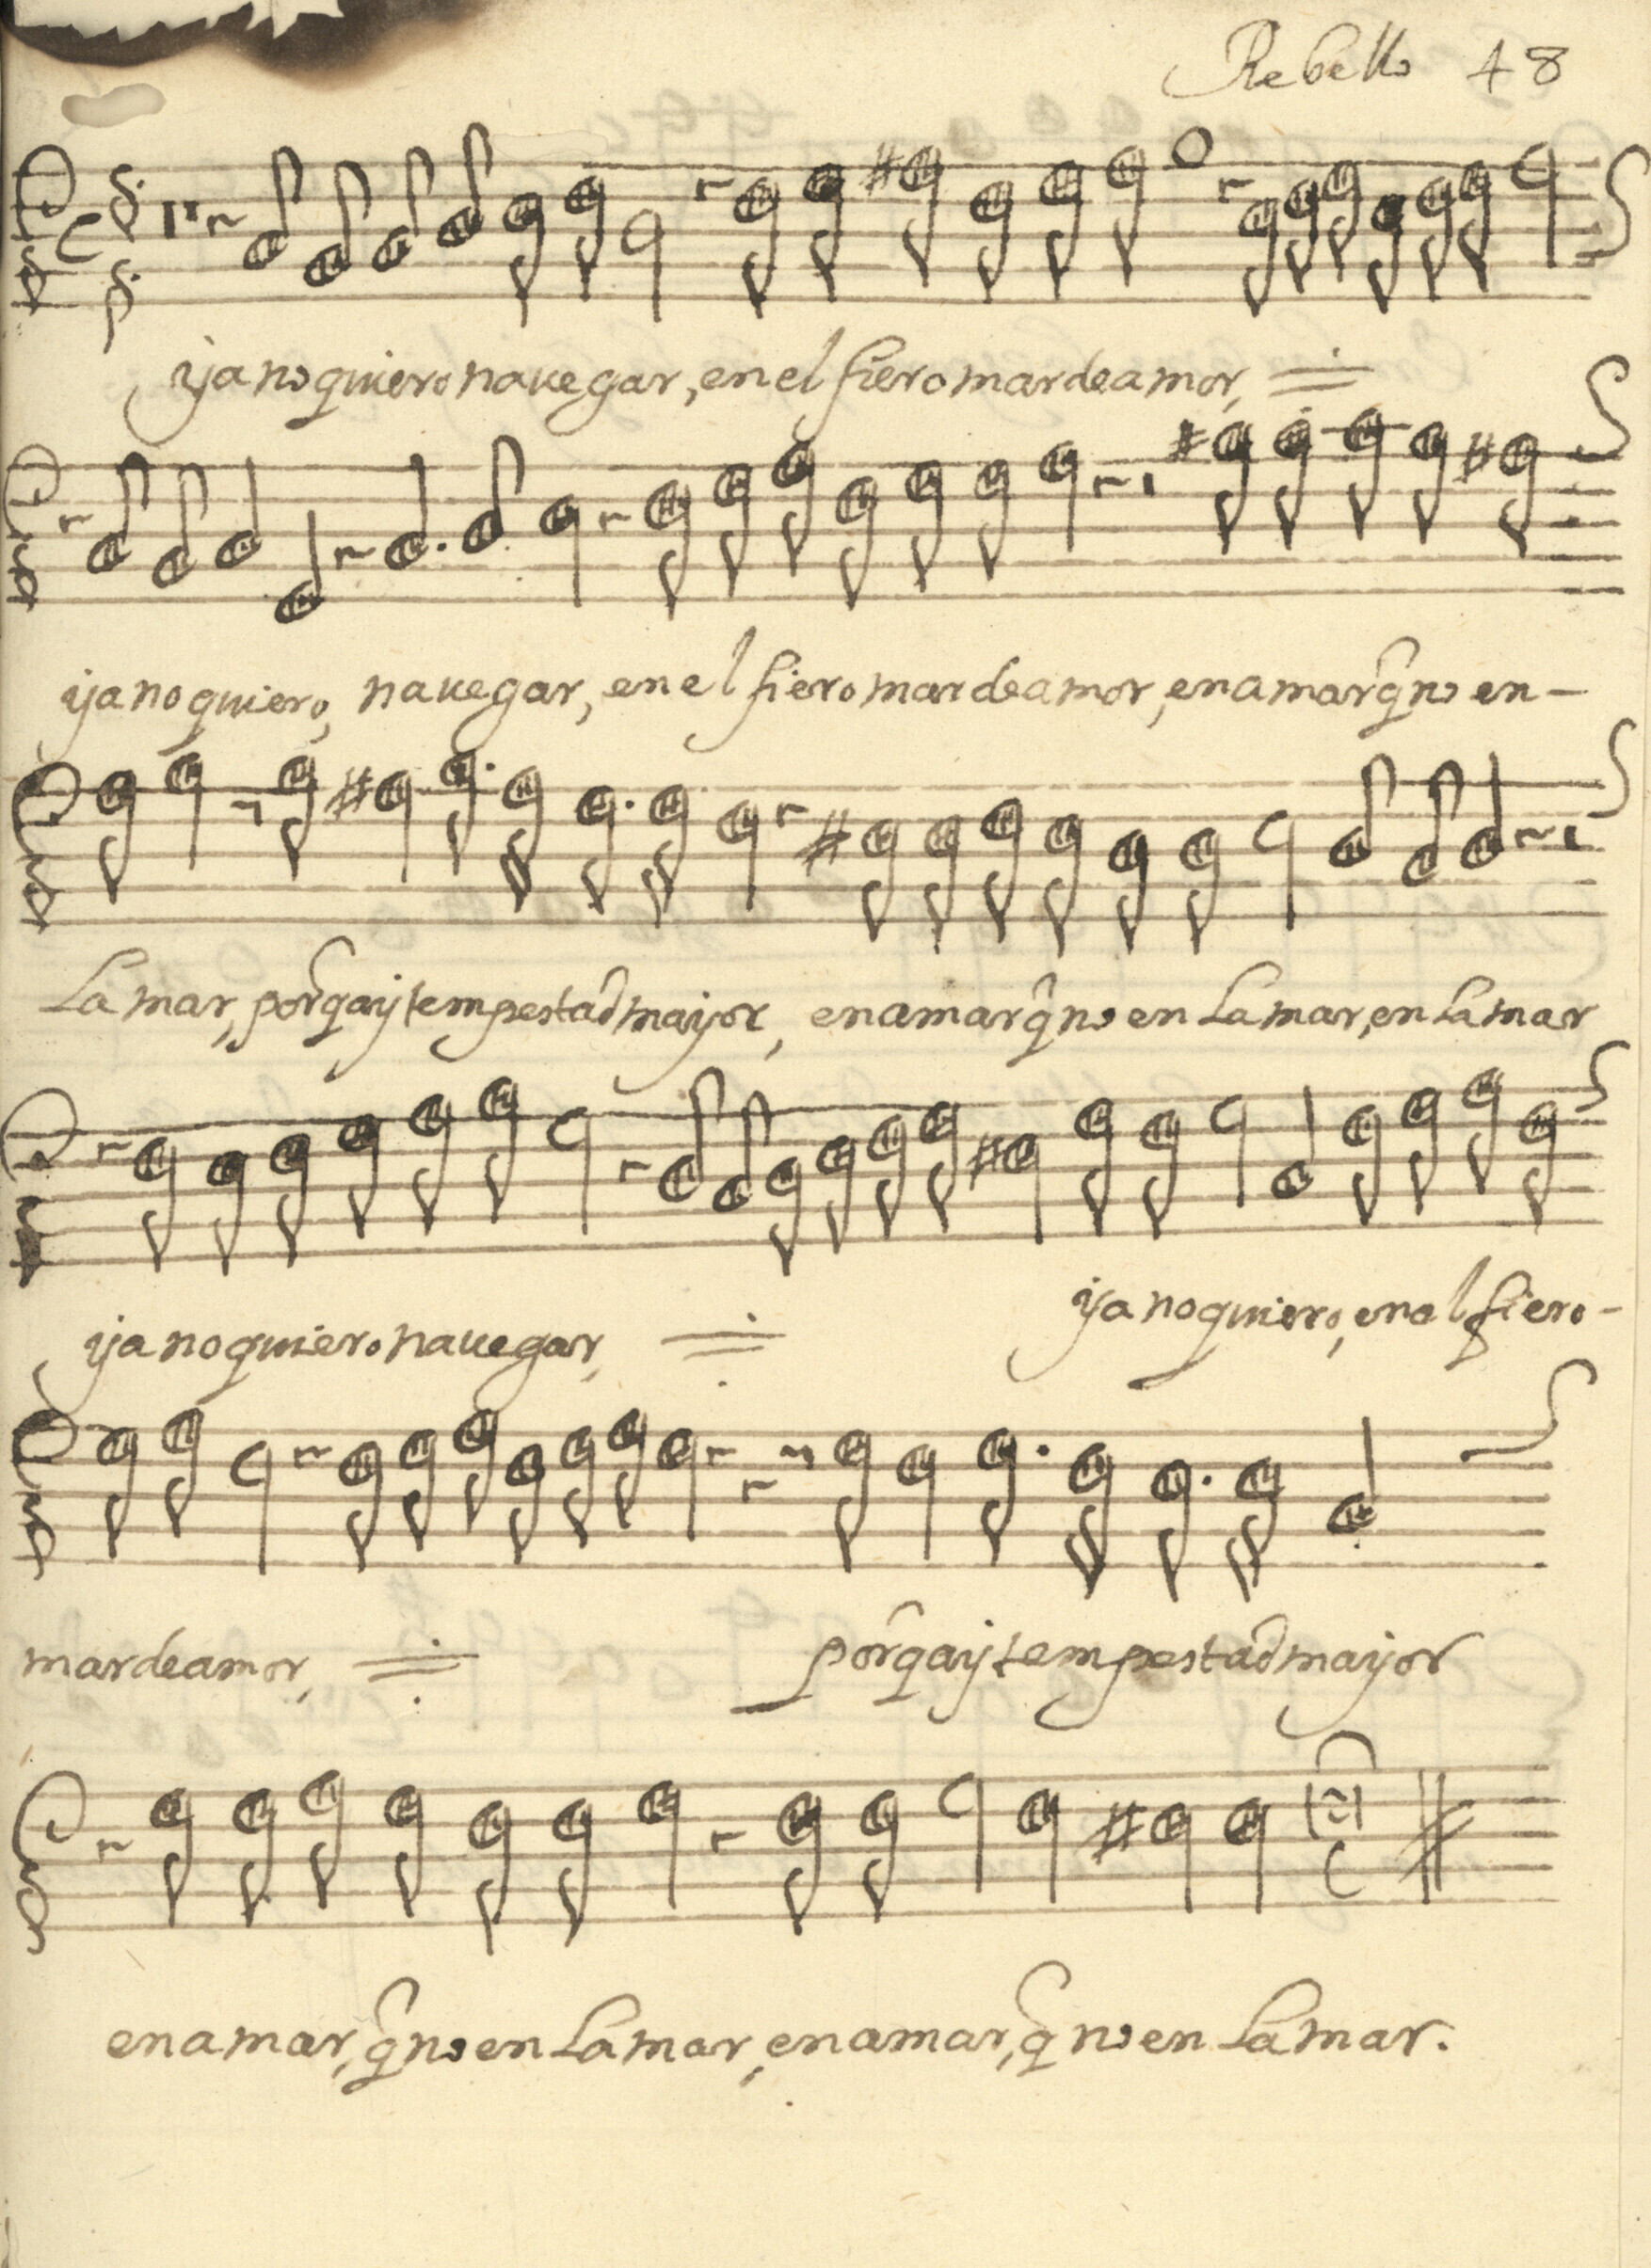 Rebello 48
ya no quiero nauegar, en el fiero mar de amor,
ya no quiero, nauegar, en el fiero mar de amor, en amar q̃ no en-
la mar, porq̃ ay tempestad mayor, en amar q̃ no en la mar, en la mar
ya no quiero nauegar, ya no quiero, en el fiero-
mar de amor, porq̃ ay tempestad mayor
en amar, q̃ no en la mar, en amar, q̃ no en la mar.